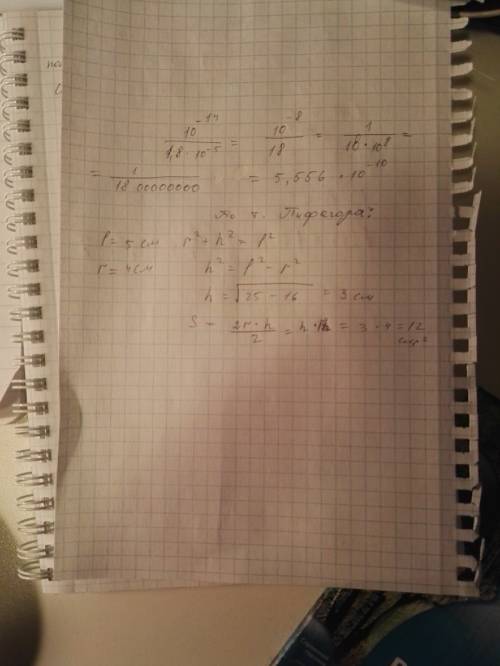 10⁻¹⁴ / 1,8 · 10⁻⁵ = 10⁻⁸ / 18 = 1 / 18 · 10⁸ =
= 1 / 18 00000000 = 5,556 · 10⁻¹⁰
По т. Пифагора:
l = 5 см r² + h² = l²
r = 4 см h² = l² - r²
h = √25 - 16 = 3 см
S = 2r · h / 2 = h · = 3 · 4 = 12